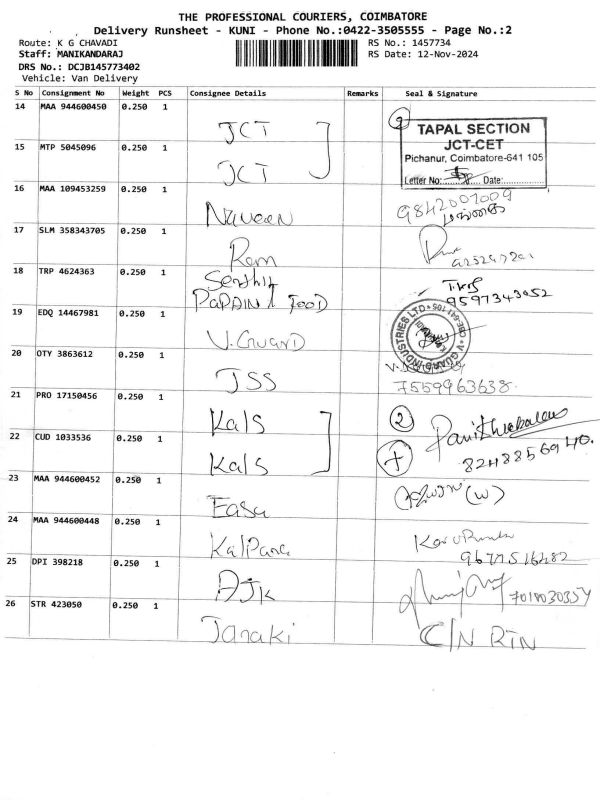 THE PROFESSIONAL COURIERS, COIMBATORE
Delivery Runsheet - KUNI - Phone No.:0422-3505555 - Page No.:2
Route: K G CHAVADI RS No.: 1457734
Staff: MANIKANDARAJ RS Date: 12-Nov-2024
DRS No.: DCJB145773402
Vehicle: Van Delivery
S No Consignment No Weight PCS Consignee Details Remarks Seal & Signature
14 MAA 944600450 0.250 1
JCT
2
TAPAL SECTION
JCT-CET
Pichanur, Coimbatore-641 105
Letter No: Date:
15 MTP 5045096 0.250 1
JCT
16 MAA 109453259 0.250 1
Naveen
9842007009
17 SLM 358343705 0.250 1
Ram
18 TRP 4624363 0.250 1
Senthil
PAPAINT FOOD
9597343052
19 EDQ 14467981 0.250 1
V.GUARD
V GUARD INDUSTRIES LTD
20 OTY 3863612 0.250 1
JSS
7559963638
21 PRO 17150456 0.250 1
Kals
2
22 CUD 1033536 0.250 1
Kals
8248856940.
23 MAA 944600452 0.250 1
Easa
(W)
24 MAA 944600448 0.250 1
Kalpana
25 DPI 398218 0.250 1
AJK
7018030354
26 STR 423050 0.250 1
Janaki
C/N RTN